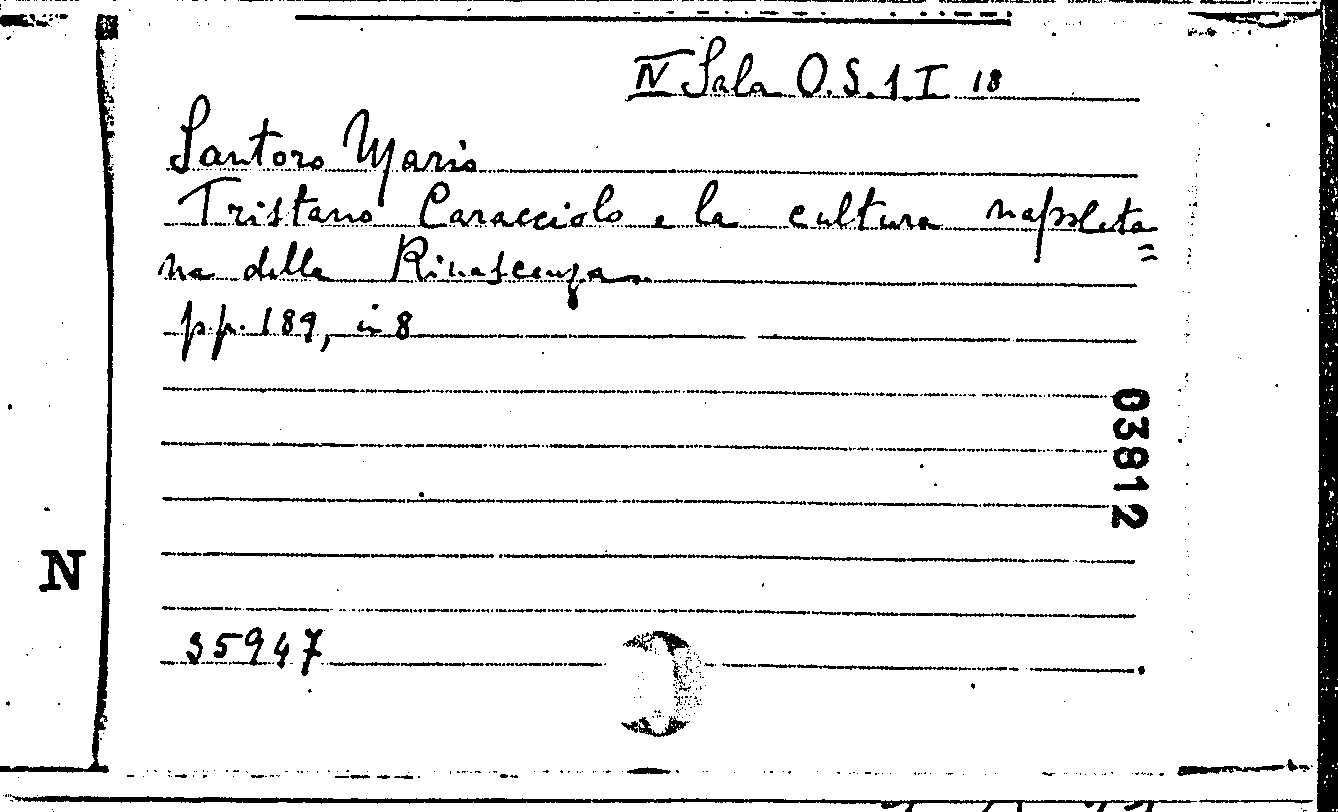 IV Sala O.S.1.I 18
Santoro Mario
Tristano Caracciolo e la cultura napoleta=
na della Rinascenza
pp. 189, in 8
03812
N
35947